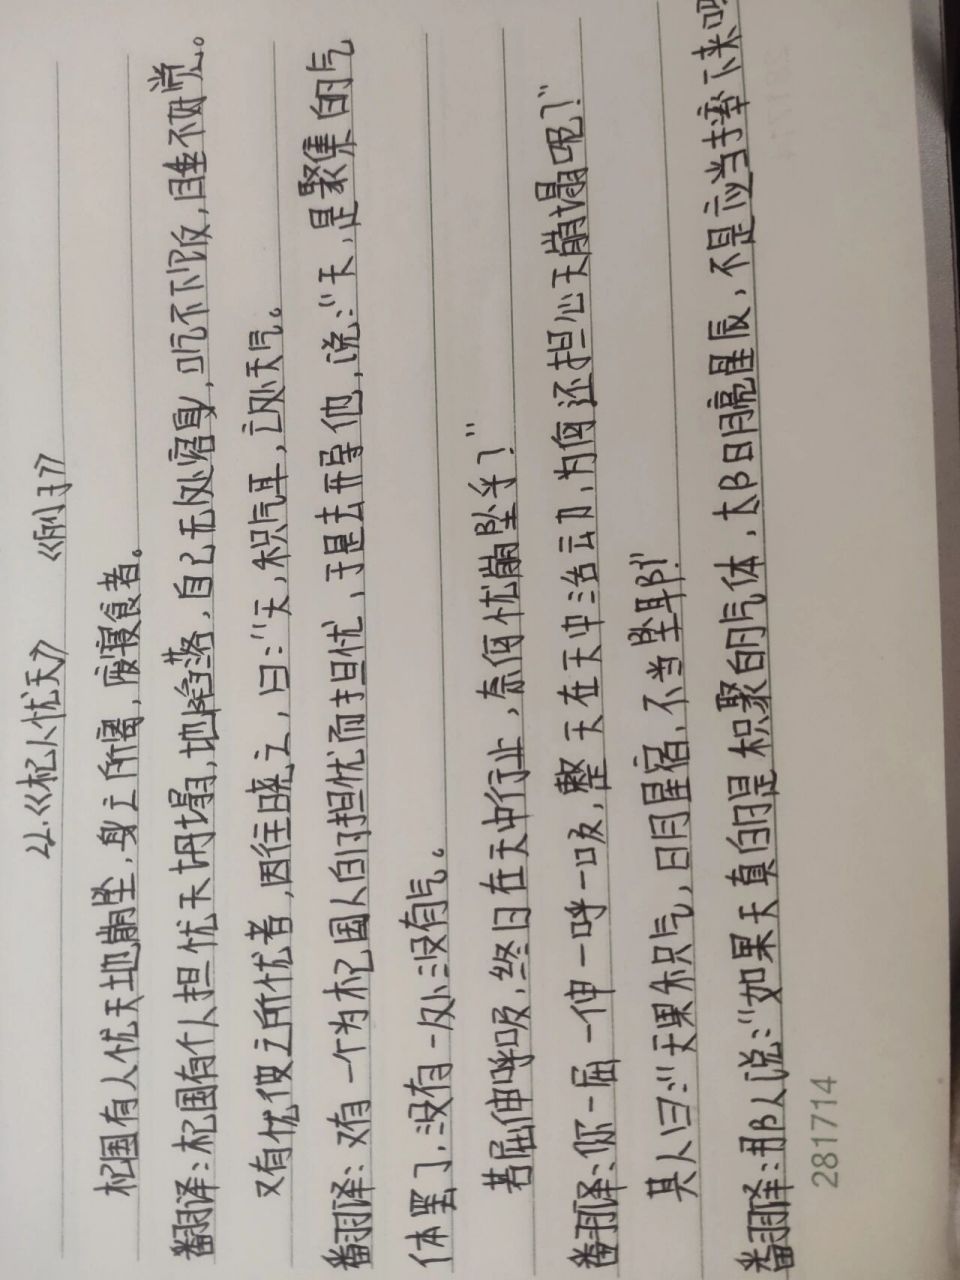 22.《杞人忧天》 《列子》
杞国有人忧天地崩坠,身亡所离,废寝食者。
翻译:杞国有个人担忧天塌,地陷落,自己无处宿身,吃不下饭,睡不好觉。
又有忧彼之所忧者,因往晓之,曰:"天,积气耳,亡处亡气。
翻译:又有一个为杞国人的担忧而担忧,于是去开导他,说:"天,是聚集的气
体罢了,没有一处没有气。
若屈伸呼吸,终日在天中行止,奈何忧崩坠乎?"
翻译:你一屈一伸一呼一吸,整天在天中活动,为何还担心天崩塌呢?"
其人曰:"天果积气,日月星宿,不当坠耶?"
翻译:那人说:"如果天真的是积聚的气体,太阳月亮星辰,不是应当摔下来吗
281714